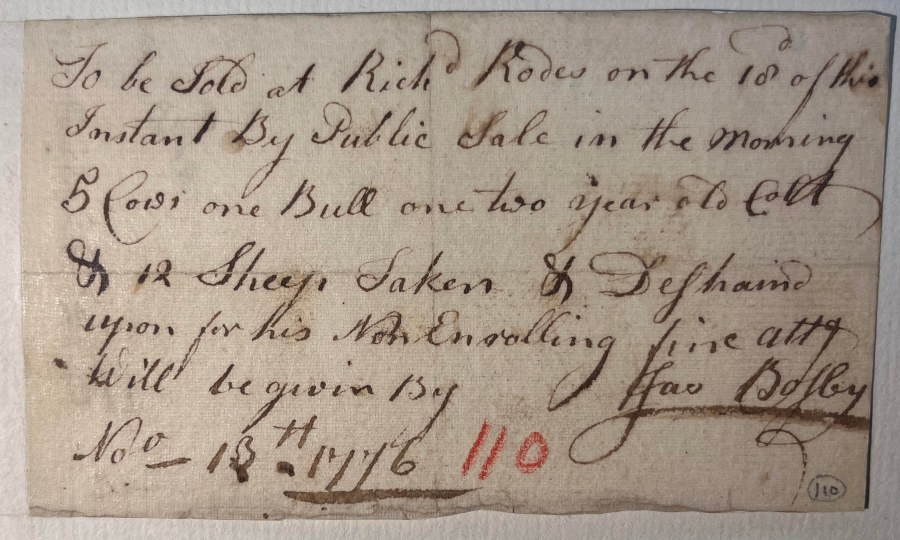 To be Sold at Rich^d Rodes on the 18^d of this
Instant By Public Sale in the Morning
5 Cows one Bull one two year old Colt
& 12 Sheep Taken &
upon for his Non Enrolling fine
Will be givin By Jas Bosley
Nov - 13^tt 1776 110
110